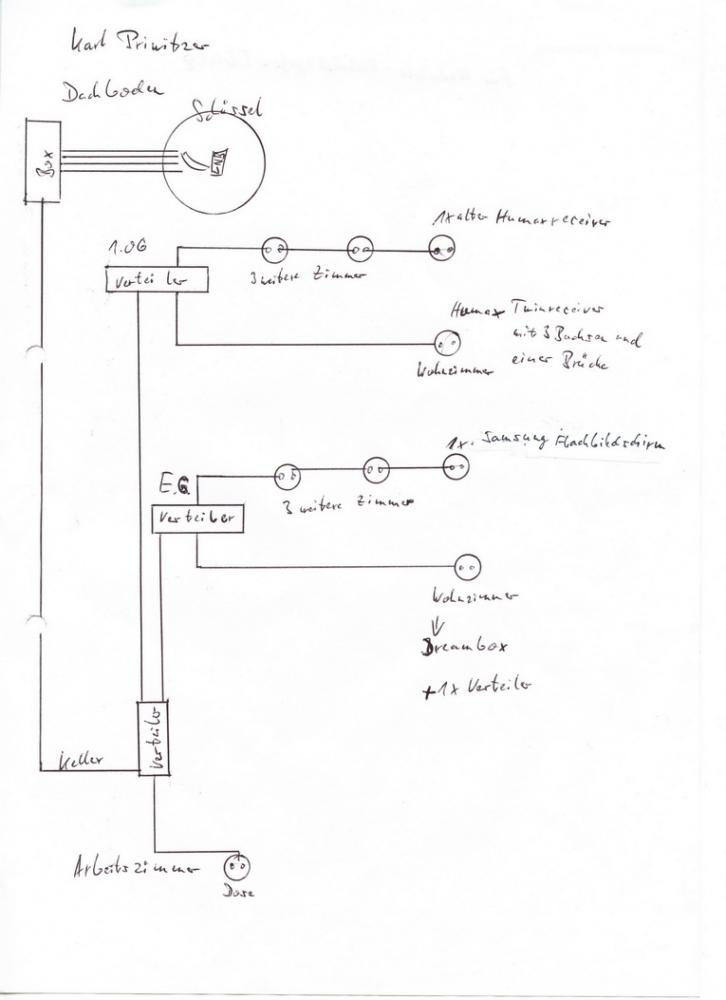 Karl Prinitzer
Dachboden
Schüssel
Box
LNB
1.OG
Verteiler
3 weitere Zimmer
1x alter Humaxreceiver
Humax Twinreceiver
mit 3 Buchsen und
einer Brücke
Wohnzimmer
1x. Samsung Flachbildschirm
E.G.
Verteiler
3 weitere Zimmer
Wohnzimmer
Dreambox
+1x Verteiler
Verteiler
Keller
Arbeitszimmer
Dose